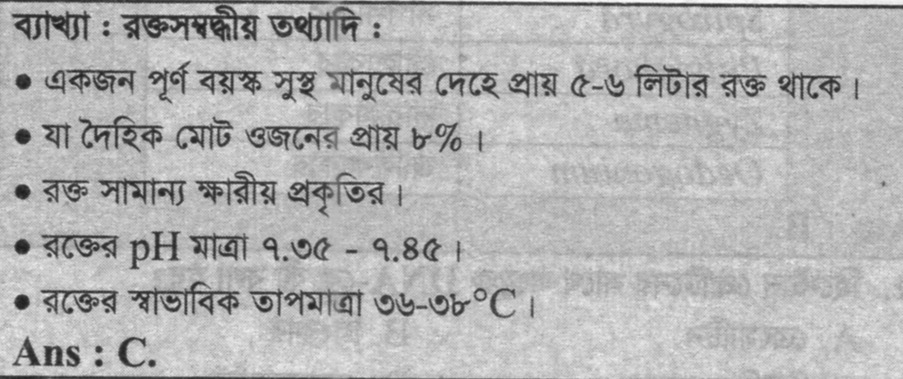 ব্যাখ্যা : রক্তসম্বন্ধীয় তথ্যাদি :
• একজন পূর্ণ বয়স্ক সুস্থ মানুষের দেহে প্রায় ৫-৬ লিটার রক্ত থাকে।
• যা দৈহিক মোট ওজনের প্রায় ৮%।
• রক্ত সামান্য ক্ষারীয় প্রকৃতির।
• রক্তের pH মাত্রা ৭.৩৫ - ৭.৪৫।
• রক্তের স্বাভাবিক তাপমাত্রা ৩৬-৩৮°C।
Ans : C.